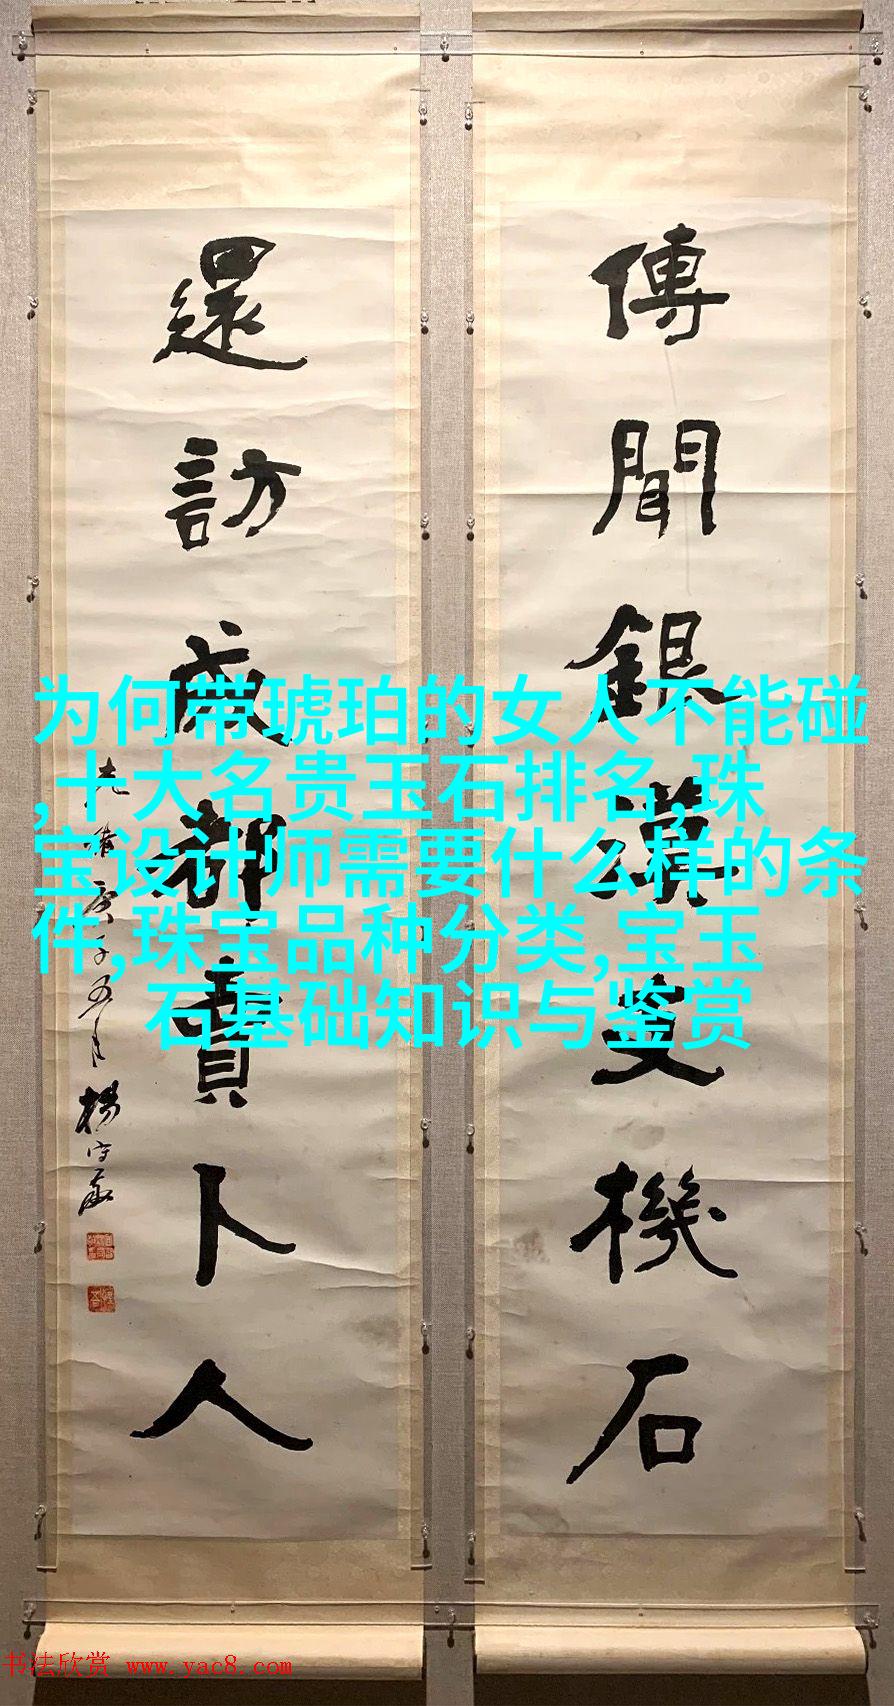 傳聞銀漢支機石
還訪成都賣卜人
光緒庚子五月楊守敬
为何带琥珀的女人不能碰
,十大名贵玉石排名,珠
宝设计师需要什么样的条
件,珠宝品种分类,宝玉
石基础知识与鉴赏
书法欣赏 www.yac8.com